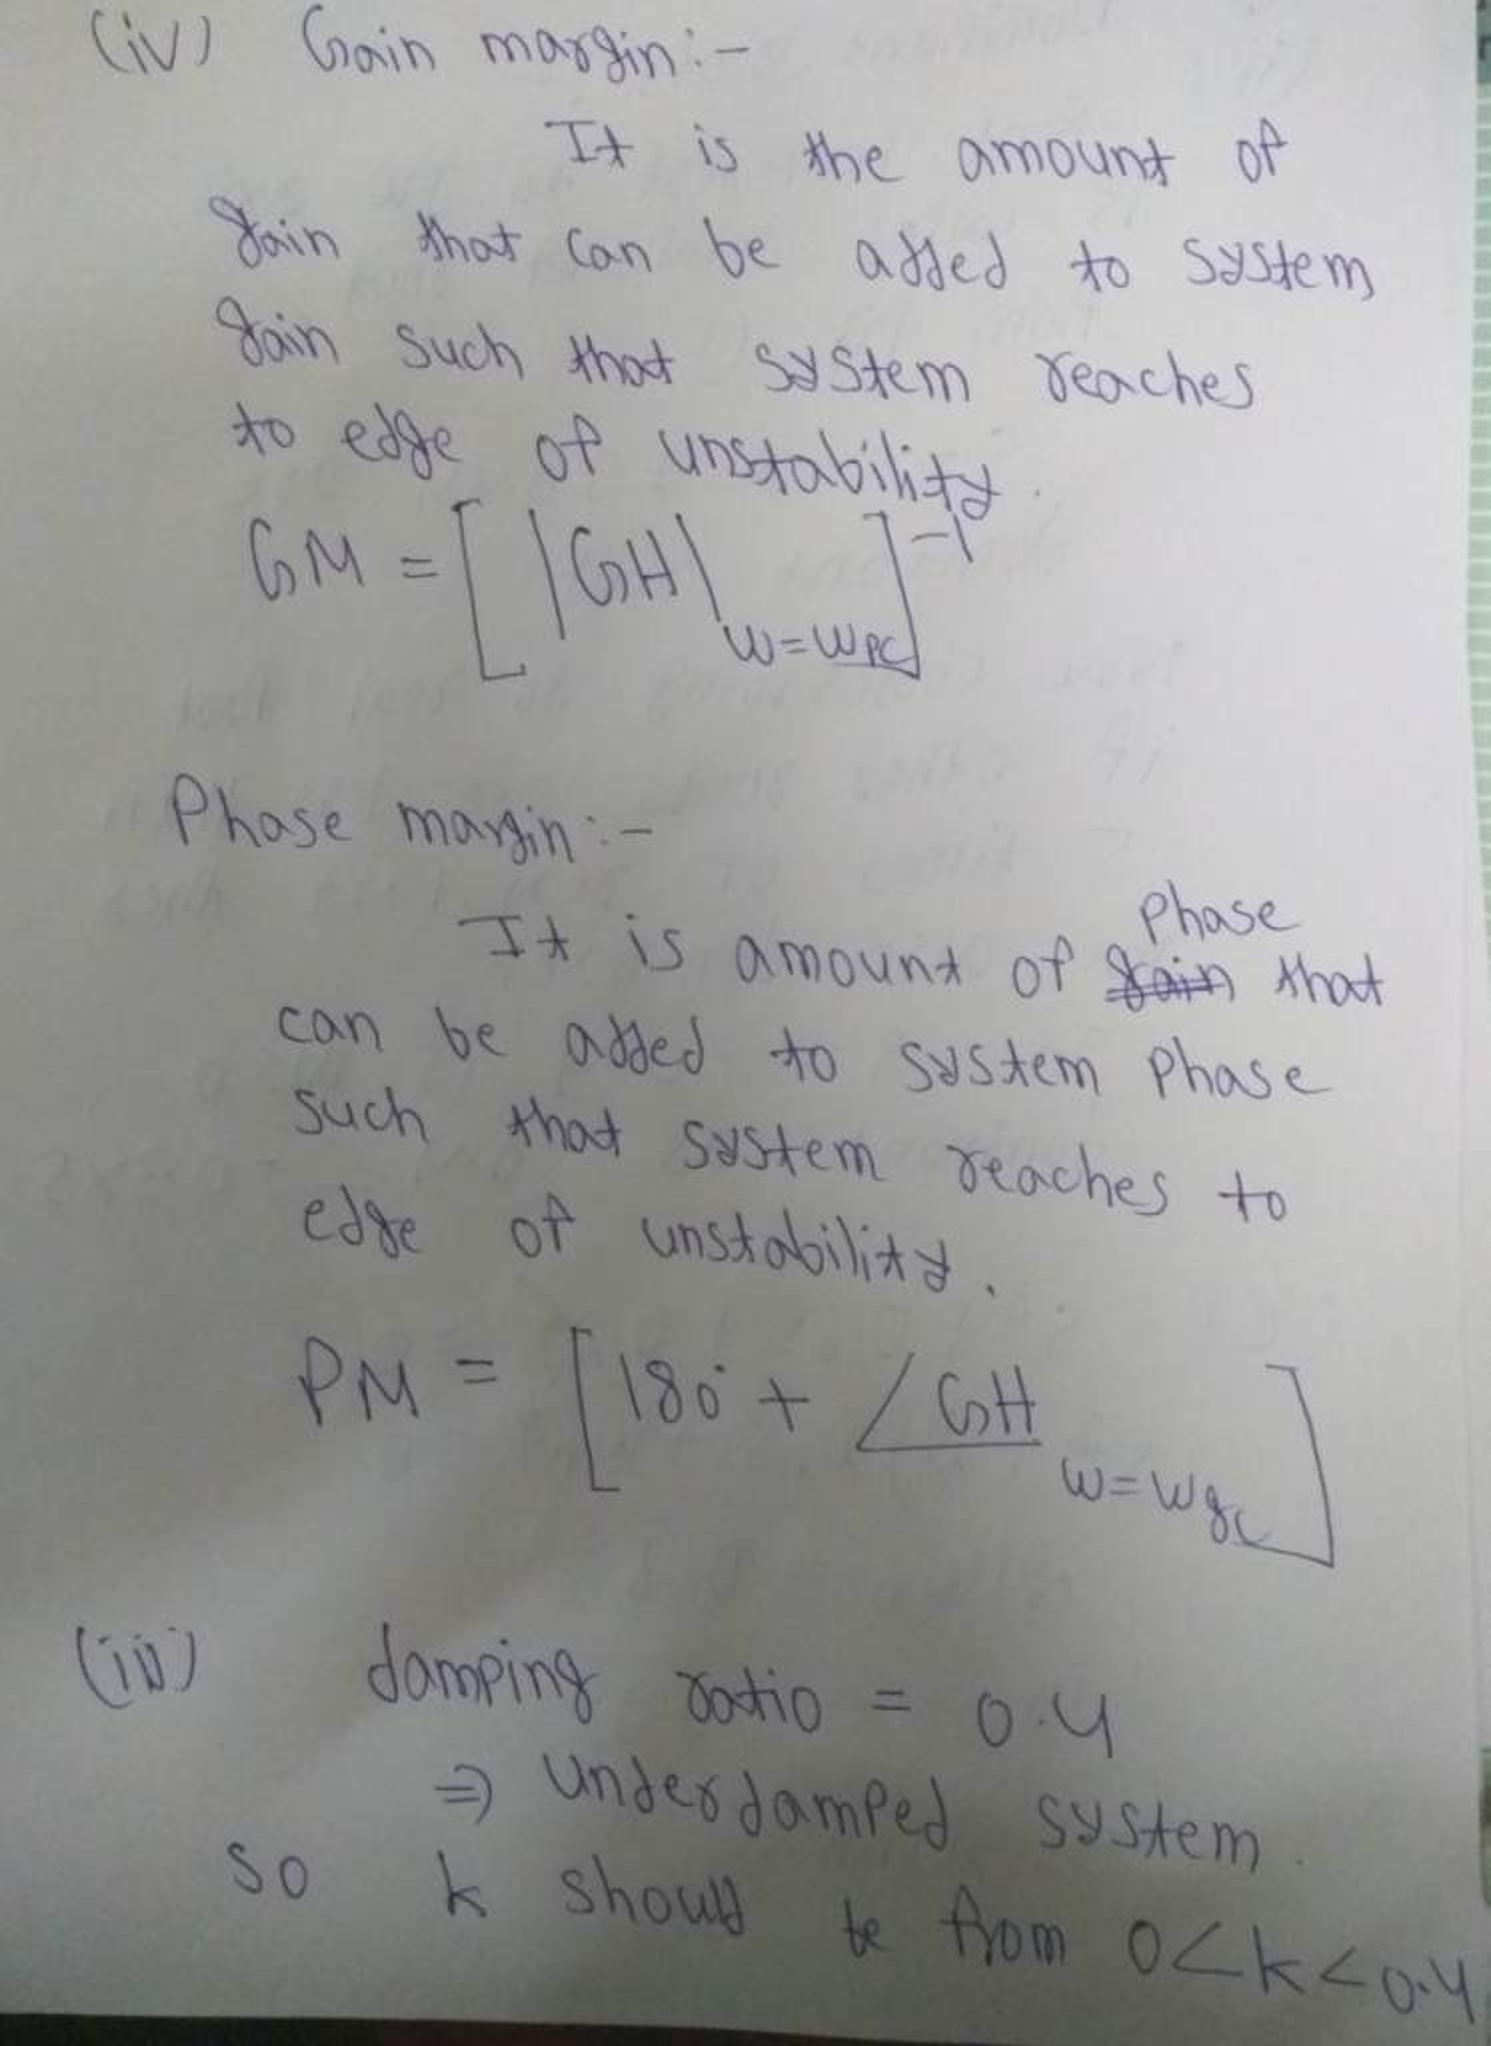 (iv) Gain margin:-
It is the amount of
gain that can be added to system
gain such that system reaches
to edge of unstability.
GM = [ |GH| ω=ωpc ]⁻¹
Phase margin:-
It is amount of phase that
can be added to system phase
such that system reaches to
edge of unstability.
PM = [180° + ∠GH ω=ωgc ]
(iii) damping ratio = 0.4
⇒ Underdamped system.
so k should be from 0<k<0.4